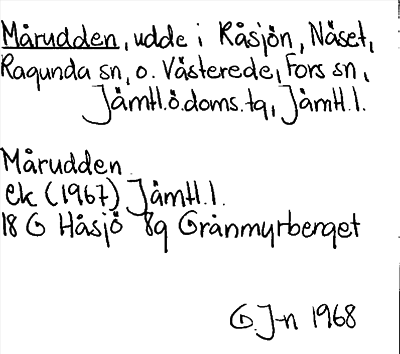 Mårudden, udde i Råsjön, Näset,
Ragunda sn, o. Västerede, Fors sn,
Jämtl.ö.doms.tg, Jämtl.l.
Mårudden
Ek (1967) Jämtl.l.
18 G Håsjö 8g Granmyrberget
G. J-n 1968